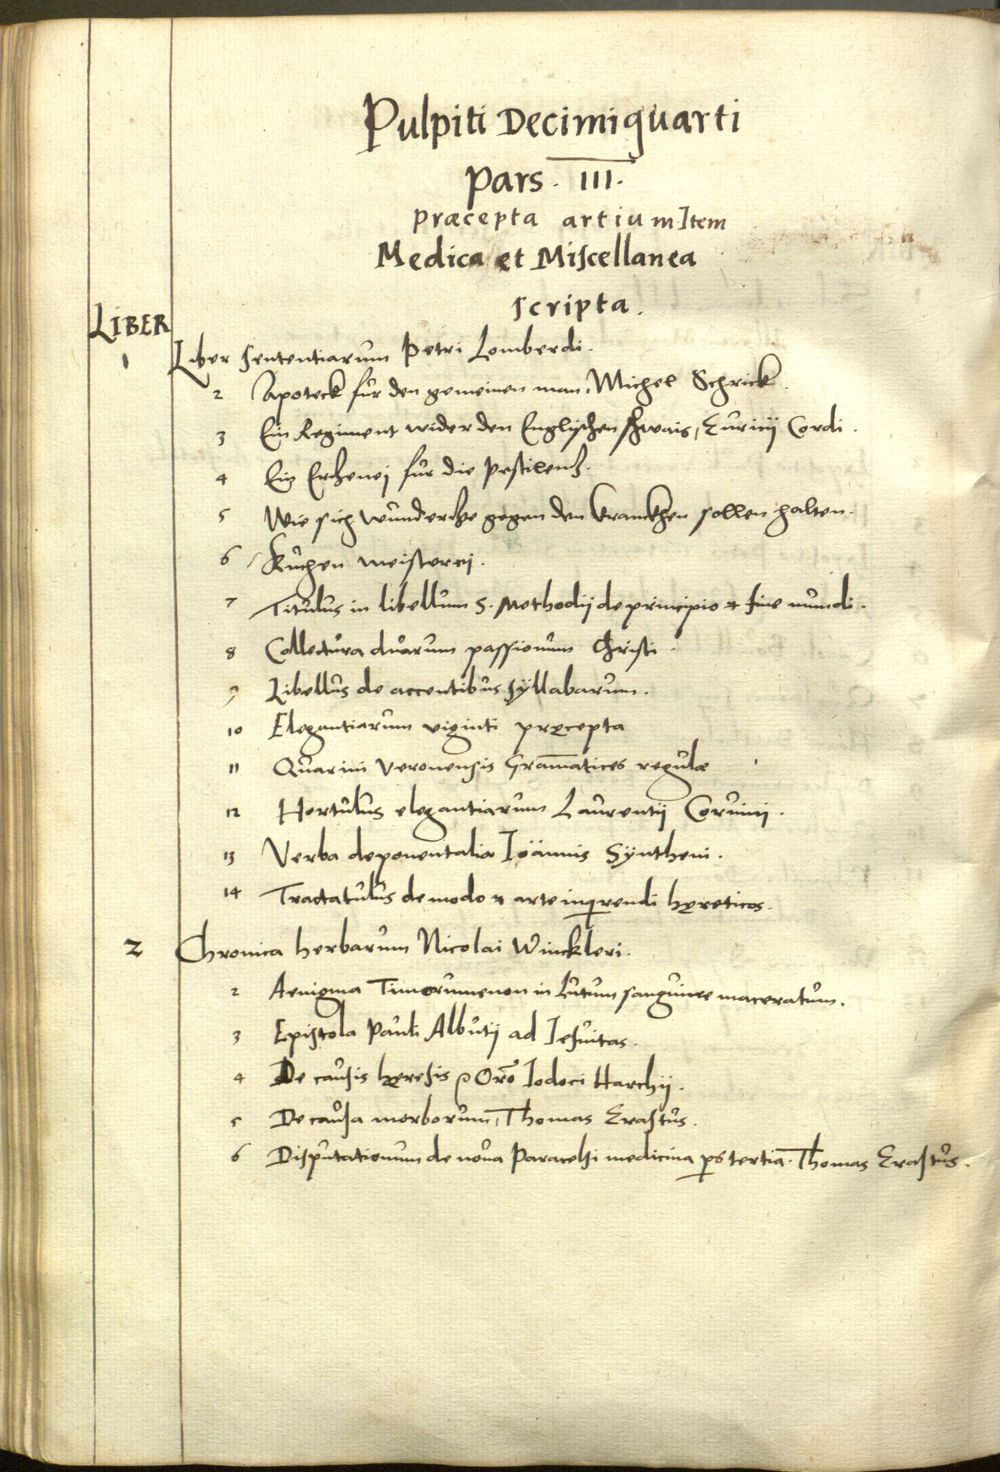 Pulpiti Decimiquarti
Pars. III.
præcepta artium Item
Medica et Miscellanea
scripta.
LIBER
1 Liber sententiarum Petri Lomberdi.
2 Apoteck für den gemeinen man. Michel Schrick.
3 Ein Regiment wider den Englischen schwais, Euricij Cordi.
4 Ein Erczenej für die Pestilentz.
5 Wie sich wundercze gegen den kranckhen sollen halten.
6 Kuchen meisterej.
7 Titulus in libellum S. Methodij de principio et fine mundi.
8 Collectura duarum passionum Christi.
9 Libellus de accentibus syllabarum.
10 Elegantiarum viginti pręcepta
11 Quarini Veronensis Gram̄atices regulæ
12 Hortulus elegantiarum Laurentij Coruini.
13 Verba deponentalia Ioānnis Sÿntheni.
14 Tractatulus de modo et arte inqꝛendi hęreticos.
2 Chronica herbarum Nicolai Winckleri.
2 Aenigma Timorumenon in Lutum sanguine maceratum.
3 Epistola Pauli Albutij ad Iesuitas.
4 De causis hęresis Iodoci Harchij.
5 De causa morborum, Thomas Erastus.
6 Disputationum de noua Paracelsi medicina ps tertia. Thomas Erastus.